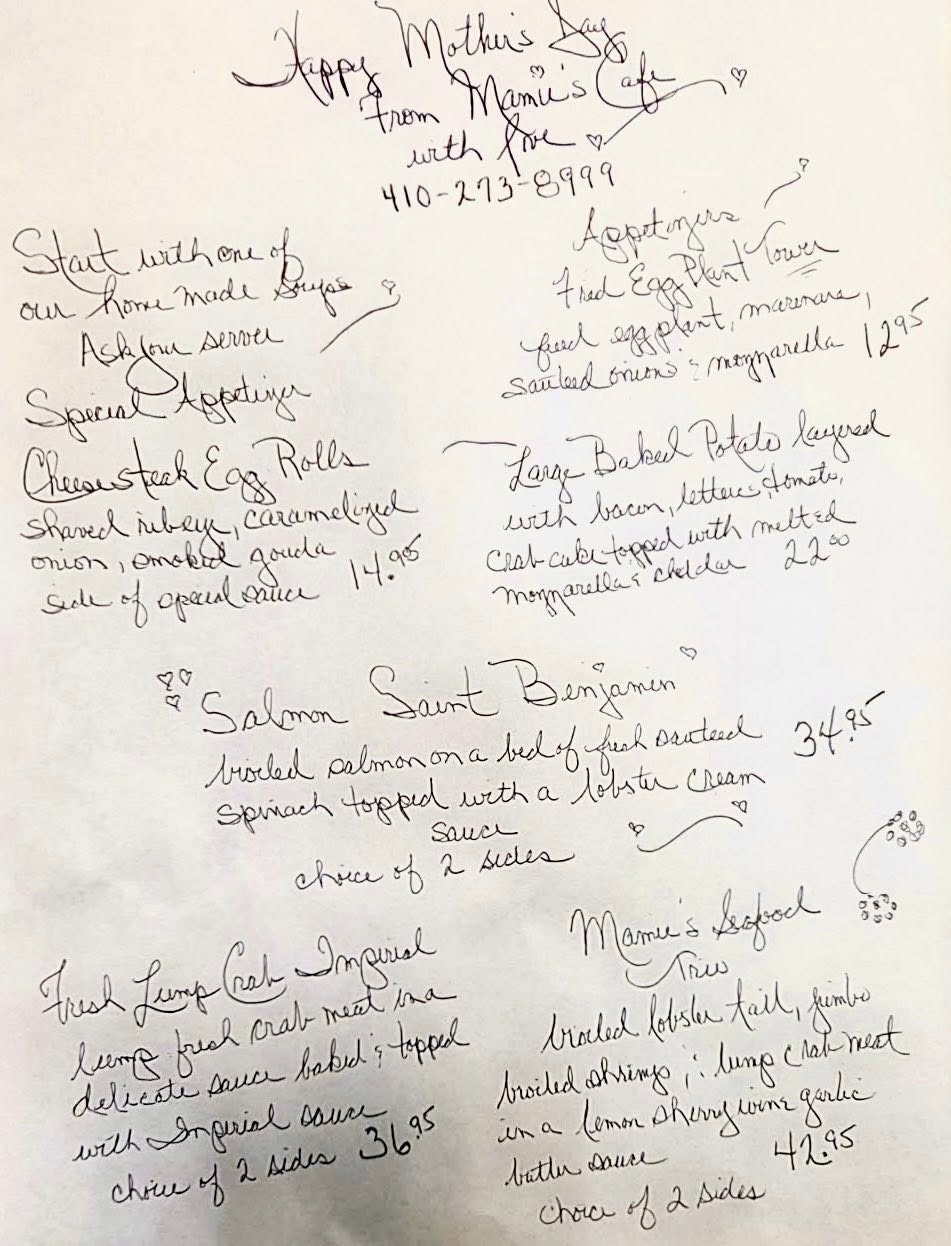 Happy Mother's Day
From Mamie's Cafe
with love
410-273-8999
Start with one of
our home made soups
Ask your server
Special Appetizer
Cheesesteak Egg Rolls
shaved ribeye, caramelized
onion, smoked gouda
side of special sauce 14.95
Appetizers
Fried Egg Plant Tower
fried eggplant, marinara,
sauteed onions & mozzarella 12.95
Large Baked Potato layered
with bacon, lettuce, tomato,
crab cake topped with melted
mozzarella & cheddar 22.00
Salmon Saint Benjamin
broiled salmon on a bed of fresh sauteed 34.95
spinach topped with a lobster cream
sauce
choice of 2 sides
Fresh Lump Crab Imperial
lump fresh crab meat in a
delicate sauce baked & topped
with Imperial sauce
choice of 2 sides 36.95
Mamie's Seafood
Trio
broiled lobster tail, jumbo
broiled shrimp, & lump crab meat
in a lemon sherry wine garlic
butter sauce 42.95
choice of 2 sides